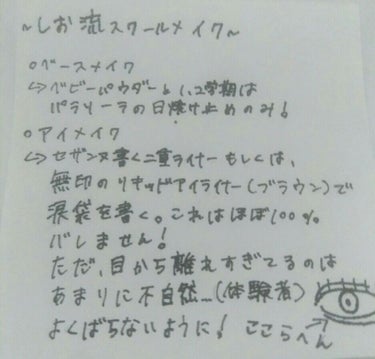 ~しお流スクールメイク~
○ベースメイク
↳ベビーパウダーと1,2学期は
パラソーラの日焼け止めのみ!
○アイメイク
↳セザンヌ書く二重ライナーもしくは、
無印のリキッドアイライナー(ブラウン)で
涙袋を書く。これはほぼ100%
バレません!
ただ、目から離れすぎてるのは
あまりに不自然…(体験者)
よくばらないように! ここらへん